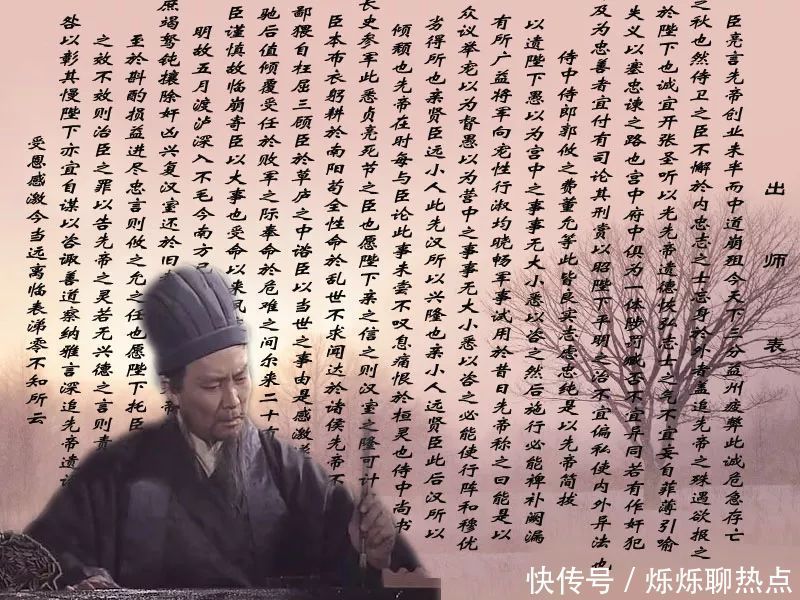 出师表
臣亮言先帝创业未半而中道崩殂今天下三分益州疲弊此诚危急存亡
之秋也然侍卫之臣不懈於内忠志之士忘身於外者盖追先帝之殊遇欲报之
於陛下也诚宜开张圣听以光先帝遗德恢弘志士之气不宜妄自菲薄引喻
失义以塞忠谏之路也宫中府中俱为一体陟罚臧否不宜异同若有作奸犯
及为忠善者宜付有司论其刑赏以昭陛下平明之治不宜偏私使内外异法也
侍中侍郎郭攸之费董允等此皆良实志虑忠纯是以先帝简拔
以遗陛下愚以为宫中之事事无大小悉以咨之然后施行必能裨补阙漏
有所广益将军向宠性行淑均晓畅军事试用於昔日先帝称之曰能是以
众议举宠以为督愚以为营中之事事无大小悉以咨之必能使行阵和穆优
劣得所也亲贤臣远小人此先汉所以兴隆也亲小人远贤臣此后汉所以
倾颓也先帝在时每与臣论此事未尝不叹息痛恨於桓灵也侍中尚书
长史参军此悉贞亮死节之臣也愿陛下亲之信之则汉室之隆可计
臣本布衣躬耕於南阳苟全性命於乱世不求闻达於诸侯先帝不
鄙猥自枉屈三顾臣於草庐之中谘臣以当世之事由是感激
驰后值倾覆受任於败军之际奉命於危难之间尔来二十有
臣谨慎故临崩寄臣以大事也受命以来夙
明故五月渡泸深入不毛今南方已
庶竭驽钝攘除奸凶兴复汉室还於旧 帝
至於斟酌损益进尽忠言则攸之允之任也愿陛下托臣
之效不效则治臣之罪以告先帝之灵若无兴德之言则责
咎以彰其慢陛下亦宜自谋以咨诹善道察纳雅言深追先帝遗
受恩感激今当远离临表涕零不知所云
快传号 / 烁烁聊热点